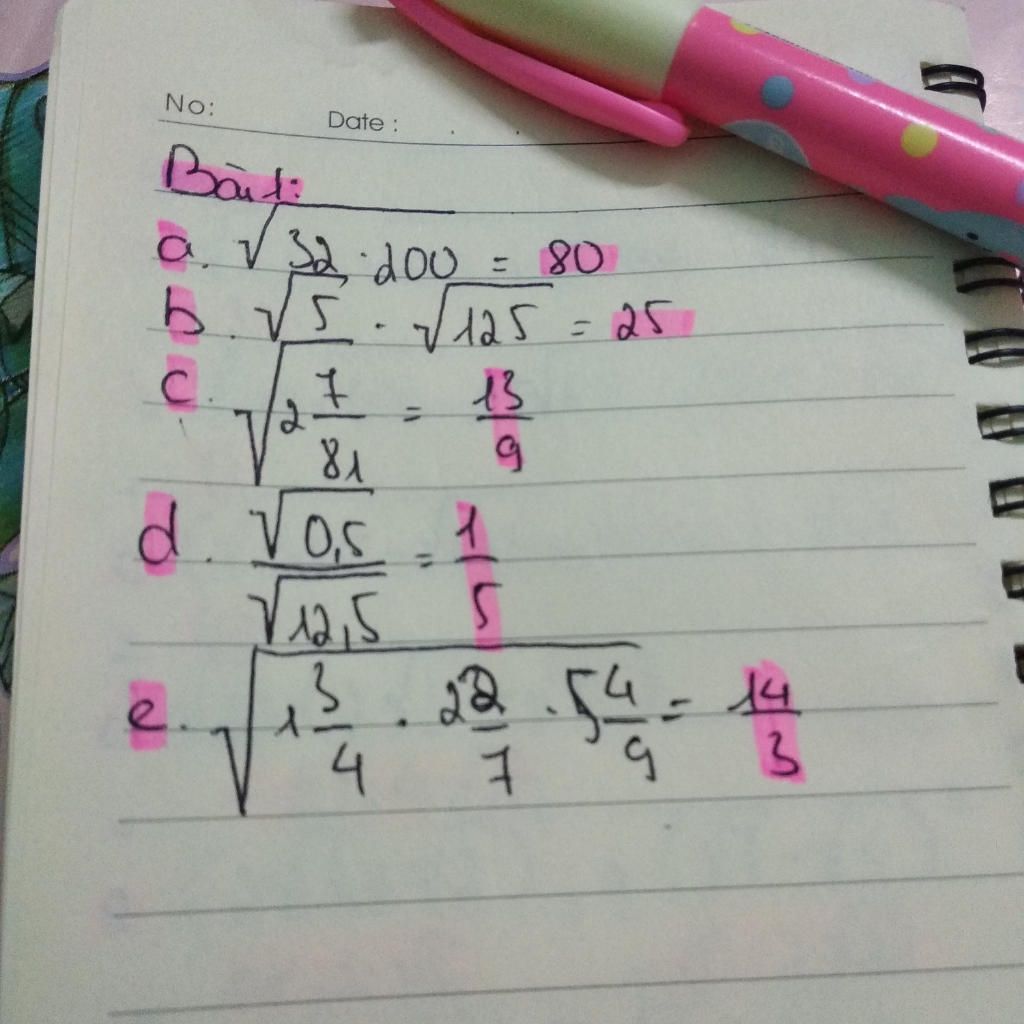 No:
Date :
Bài 1:
a. √32 · 200 = 80
b. √5 · √125 = 25
c. √2 7/81 = 13/9
d. √0,5/√12,5 = 1/5
e. √1 3/4 · 2 2/7 · 5 4/9 = 14/3